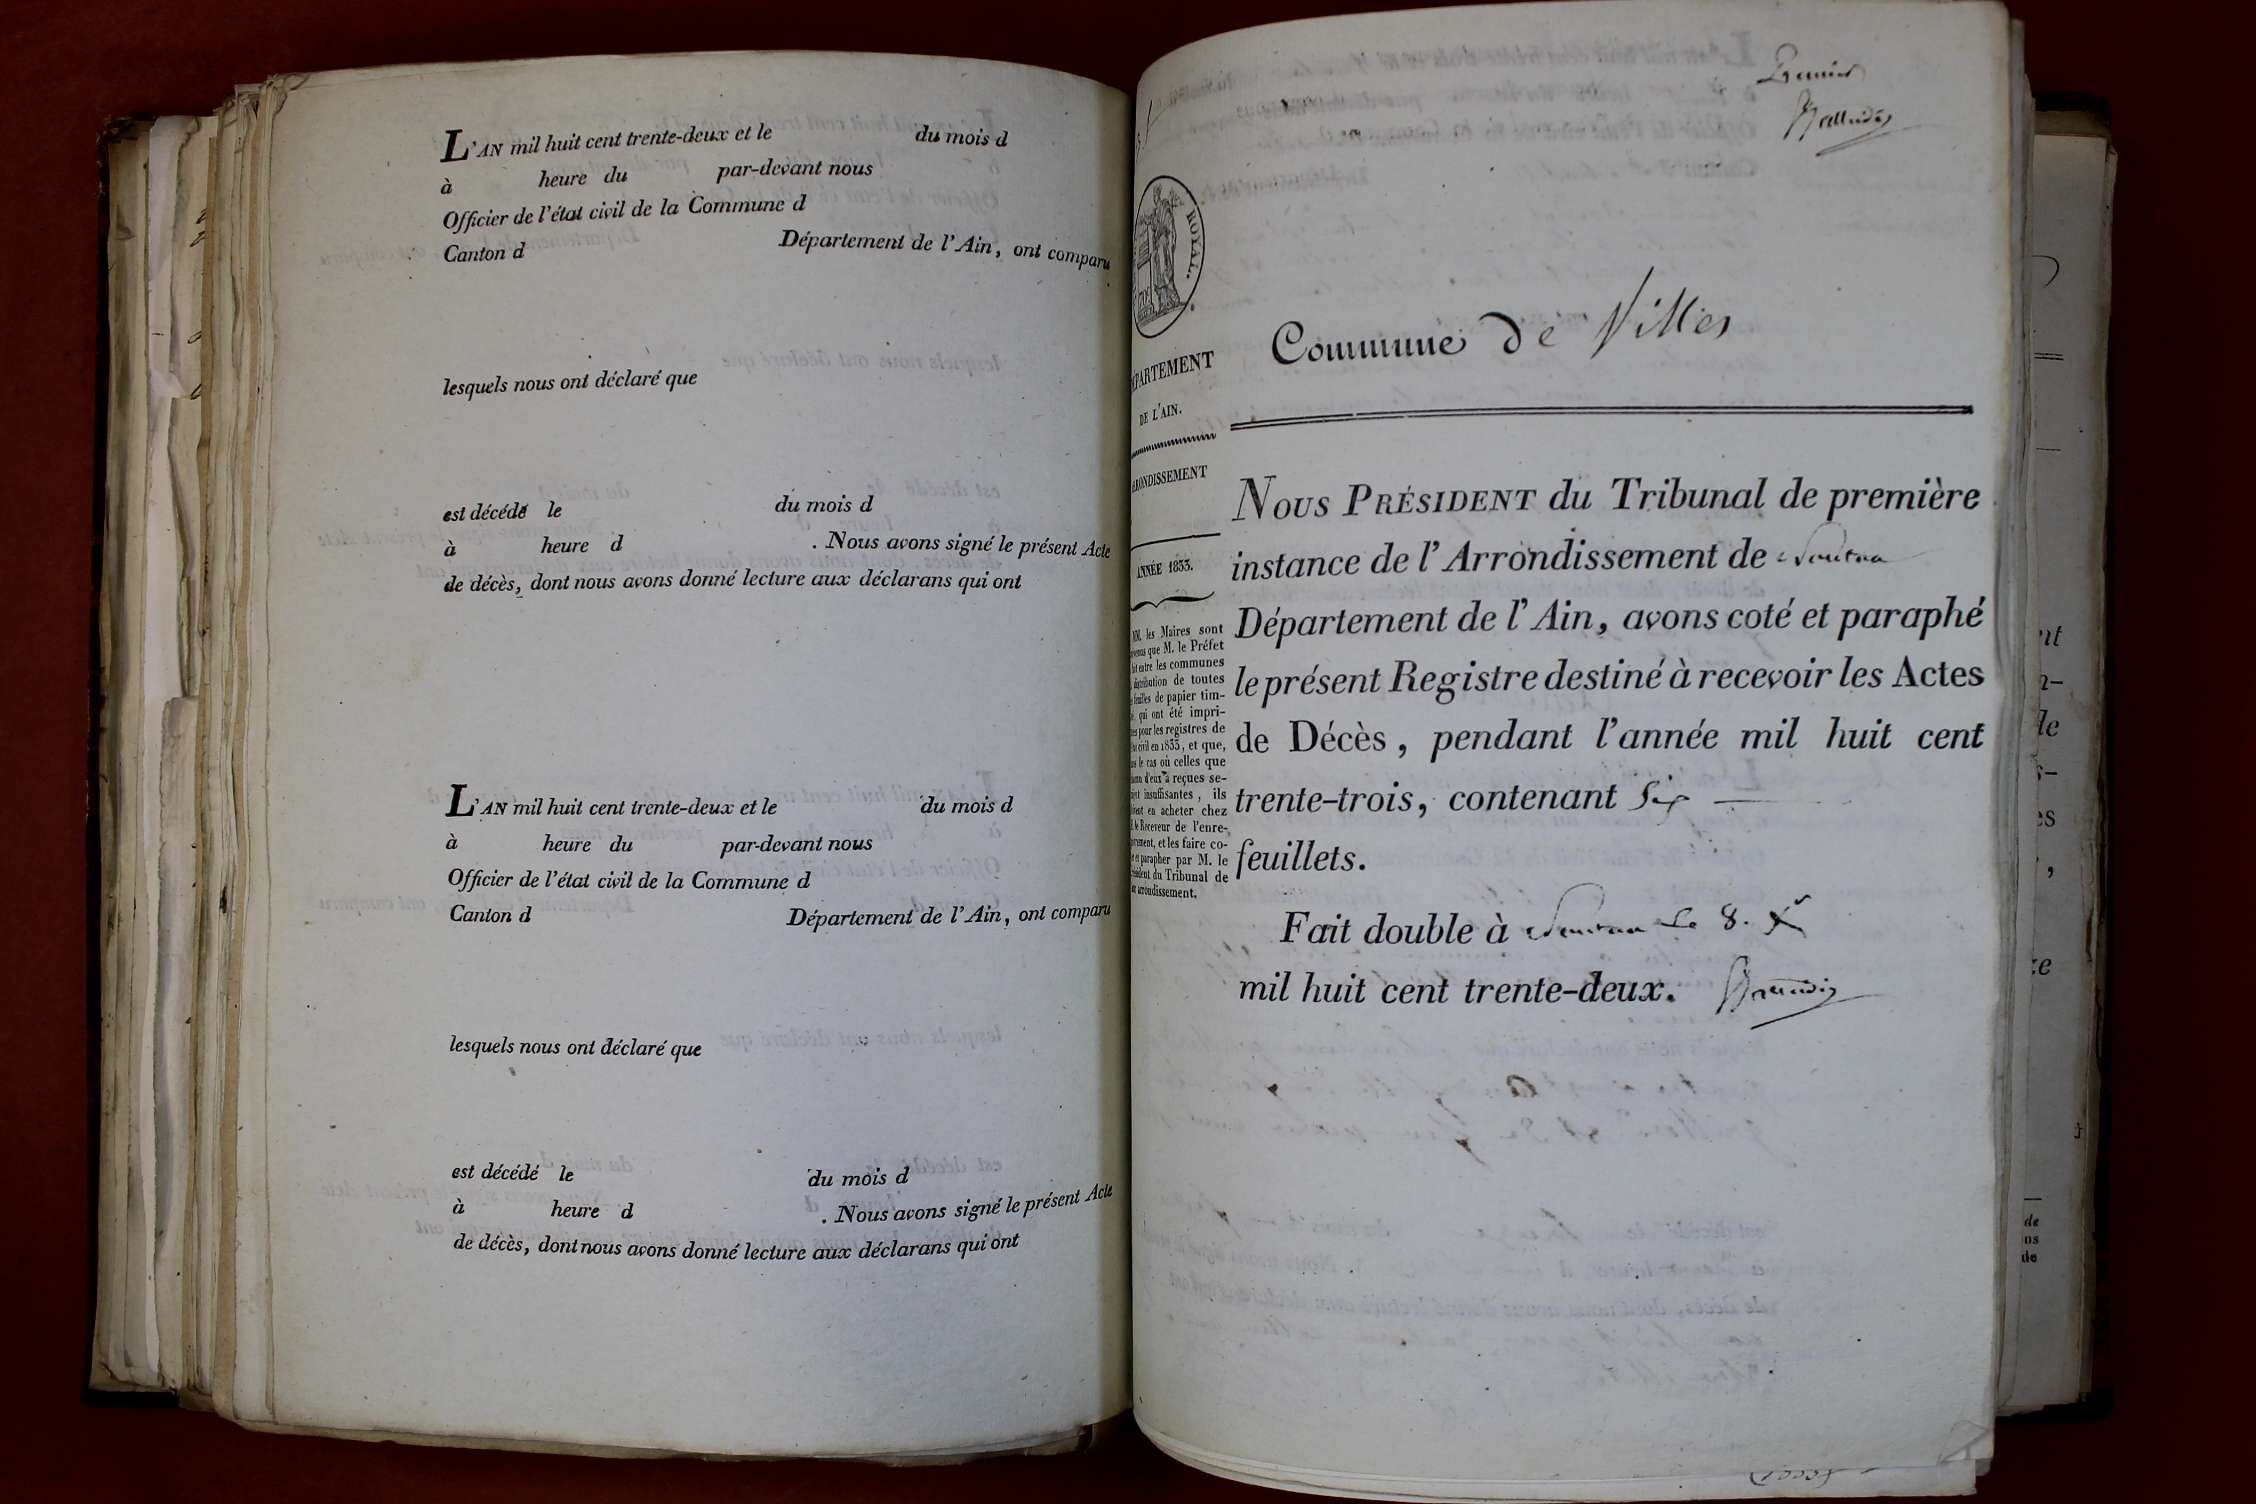 L'AN mil huit cent trente-deux et le du mois d
à heure du par-devant nous
Officier de l'état civil de la Commune d
Canton d Département de l'Ain, ont comparu
lesquels nous ont déclaré que
est décédé le du mois d
à heure d . Nous avons signé le présent Acte
de décès, dont nous avons donné lecture aux déclarans qui ont
L'AN mil huit cent trente-deux et le du mois d
à heure du par-devant nous
Officier de l'état civil de la Commune d
Canton d Département de l'Ain, ont comparu
lesquels nous ont déclaré que
est décédé le du mois d
à heure d . Nous avons signé le présent Acte
de décès, dont nous avons donné lecture aux déclarans qui ont
Premier
ROYAL.
PARTEMENT
DE L'AIN.
RONDISSEMENT
ANNÉE 1833.
MM. les Maires sont
que M. le Préfet
entre les communes
distribution de toutes
feuilles de papier tim-
qui ont été impri-
pour les registres de
civil en 1833, et que,
le cas où celles que
d'eux a reçues se-
insuffisantes, ils
en acheter chez
le Receveur de l'enre-
et les faire co-
et parapher par M. le
du Tribunal de
arrondissement.
Commune de Villes
NOUS PRÉSIDENT du Tribunal de première
instance de l'Arrondissement de Nantua
Département de l'Ain, avons coté et paraphé
le présent Registre destiné à recevoir les Actes
de Décès, pendant l'année mil huit cent
trente-trois, contenant Six
feuillets.
Fait double à Nantua Le 8. Xr
mil huit cent trente-deux.